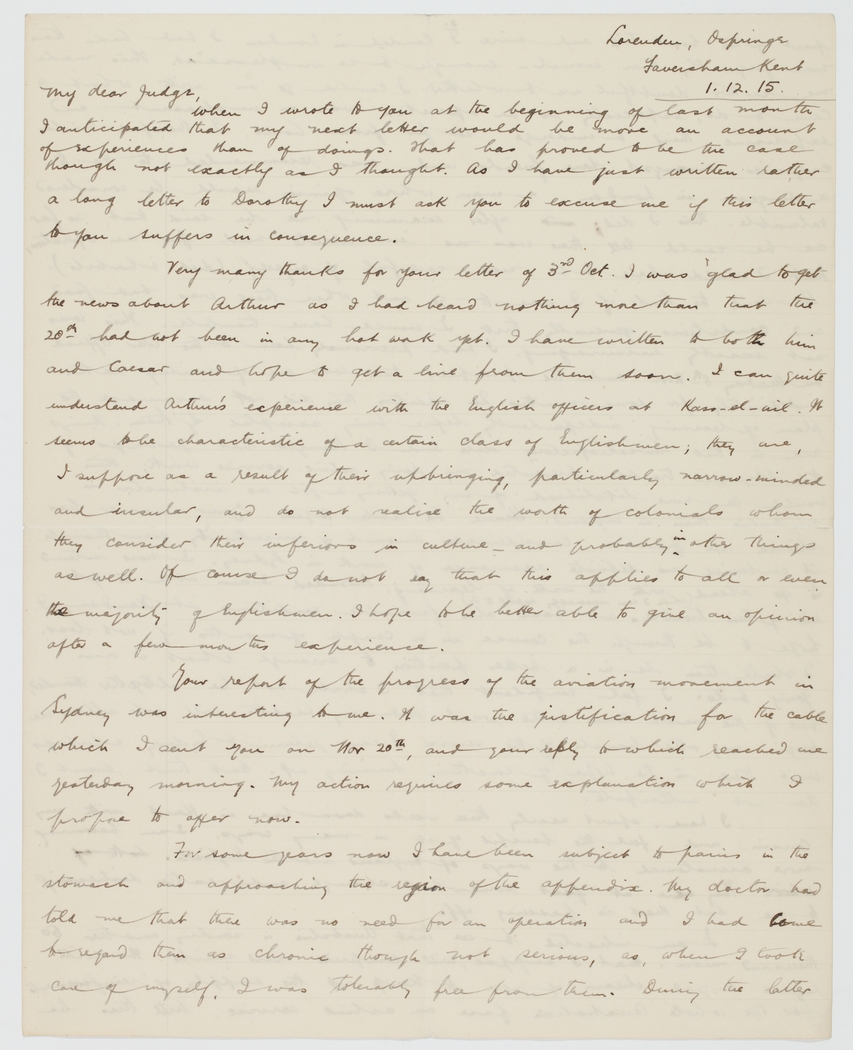 Lorenden, Ospringe
Faversham Kent
1. 12. 15.
My dear Judge,
When I wrote to you at the beginning of last month
I anticipated that my next letter would be more an account
of experiences than of doings. That has proved to be the case
though not exactly as I thought. As I have just written rather
a long letter to Dorothy I must ask you to excuse me if this letter
to you suffers in consequence.
Very many thanks for your letter of 3rd Oct. I was glad to get
the news about Arthur as I had heard nothing more than that the
20th had not been in any hot work yet. I have written to both him
and Caesar and hope to get a line from them soon. I can quite
understand Arthur's experience with the English officers at Kass-el-nil. It
seems to be characteristic of a certain class of Englishmen; they are,
I suppose as a result of their upbringing, particularly narrow-minded
and insular, and do not realise the worth of colonials whom
they consider their inferiors in culture - and probably in other things
as well. Of course I do not say that this applies to all or even
the majority of Englishmen. I hope to be better able to give an opinion
after a few months experience.
Your report of the progress of the aviation movement in
Sydney was interesting to me. It was the justification for the cable
which I sent you on Nov 20th, and your reply to which reached me
yesterday morning. My action requires some explanation which I
propose to offer now.
For some years now I have been subject to pains in the
stomach and approaching the region of the appendix. My doctor had
told me that there was no need for an operation and I had come
to regard them as chronic though not serious, as, when I took
care of myself, I was tolerably free from them. During the latter